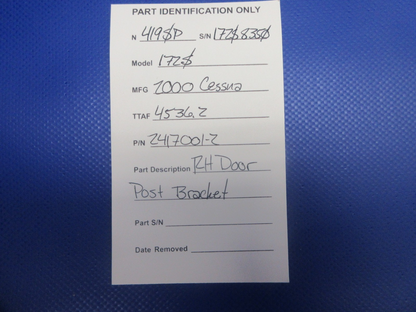 PART IDENTIFICATION ONLY
N 419SP S/N 172S8350
Model 172S
MFG 2000 Cessna
TTAF 4536.2
P/N 2417001-2
Part Description RH Door
Post Bracket
Part S/N
Date Removed